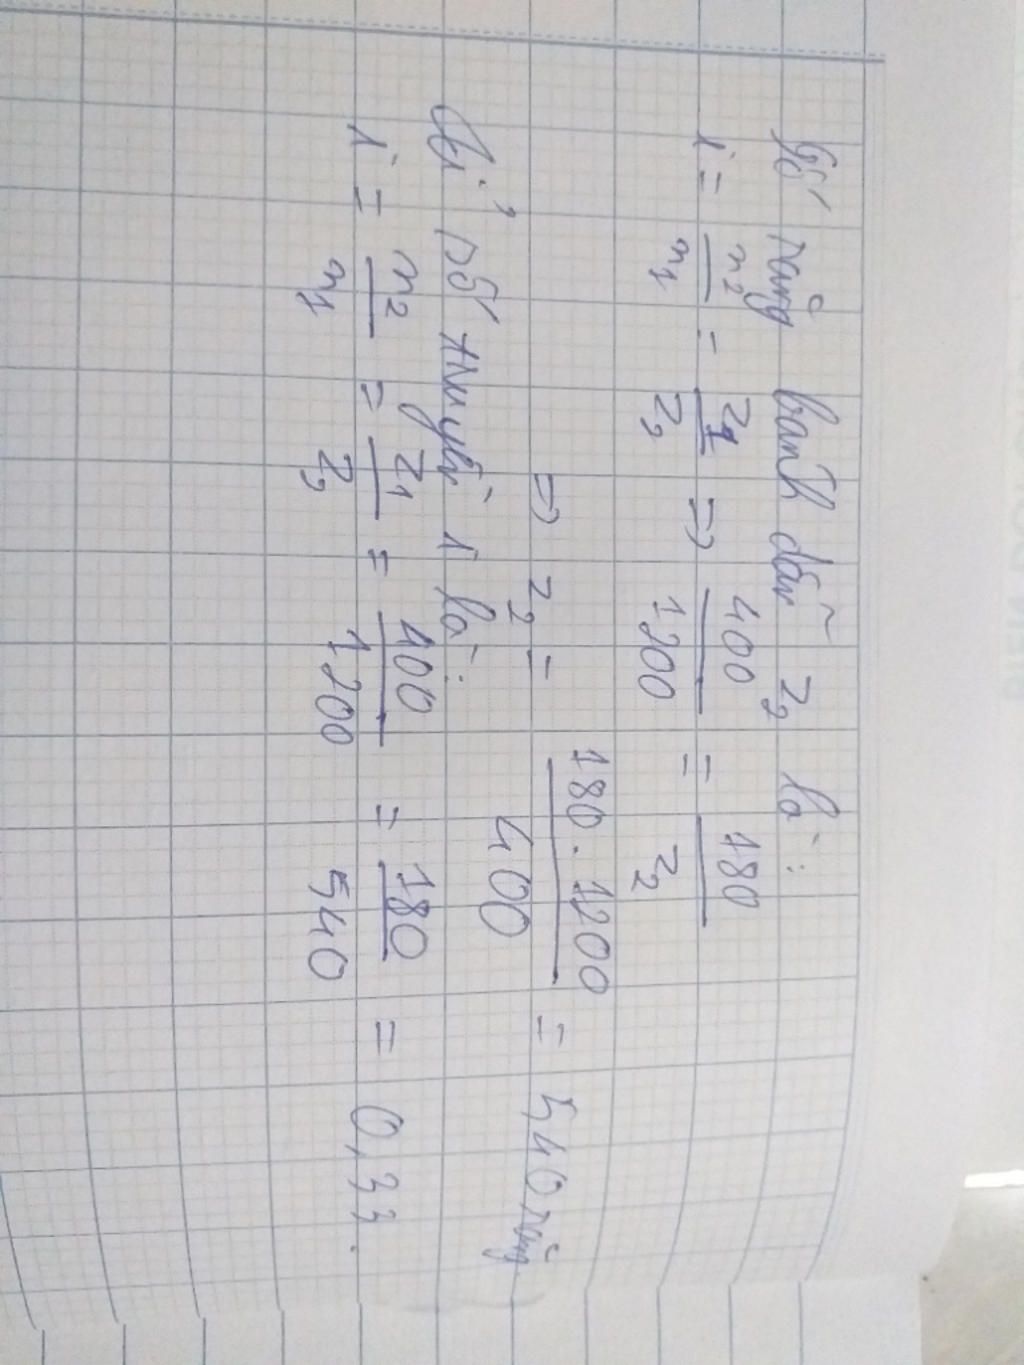 Số răng banh dẫn z₂ là:
i = n₂/n₁ = z₁/z₂ => 400/1200 = 180/z₂
=> z₂ = 180.1200/400 = 540 răng
Tỉ số truyền i là:
i = n₂/n₁ = z₁/z₂ = 400/1200 = 180/540 = 0,33.